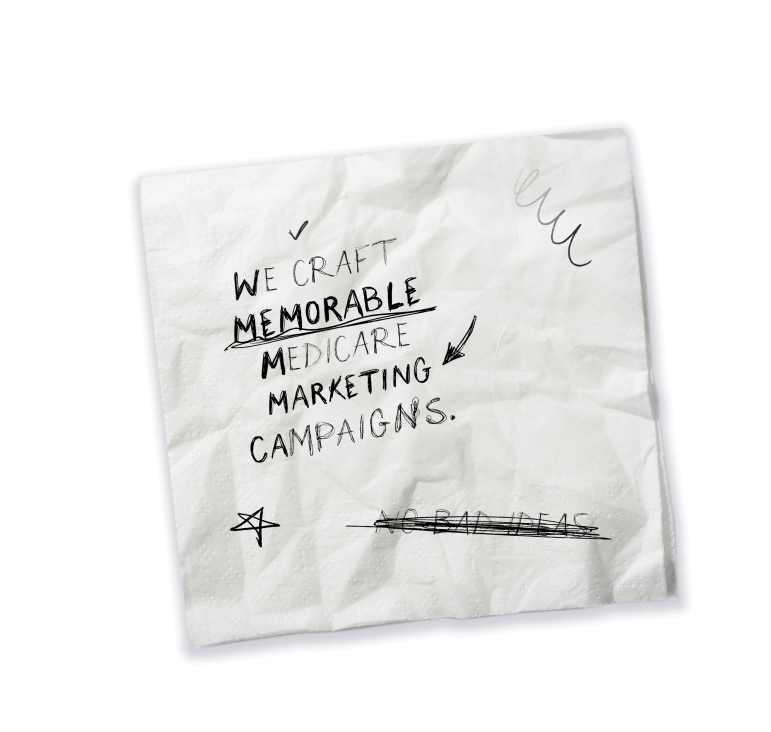 WE CRAFT
MEMORABLE
MEDICARE
MARKETING
CAMPAIGNS.
NO BAD IDEAS